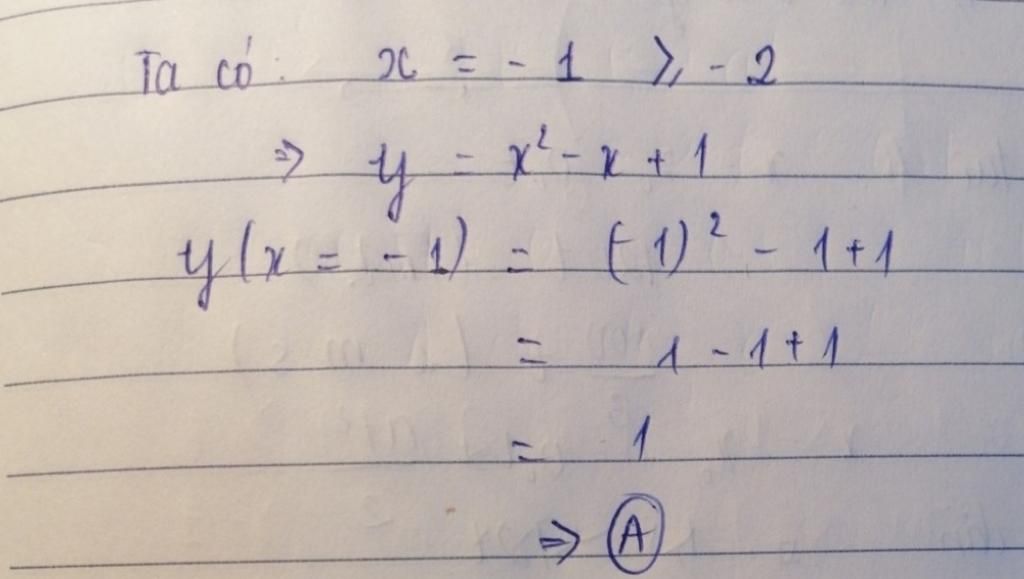 Ta có: x = -1 ⩾ -2
⇒ y = x² - x + 1
y(x = -1) = (-1)² - 1 + 1
= 1 - 1 + 1
= 1
⇒ Ⓐ